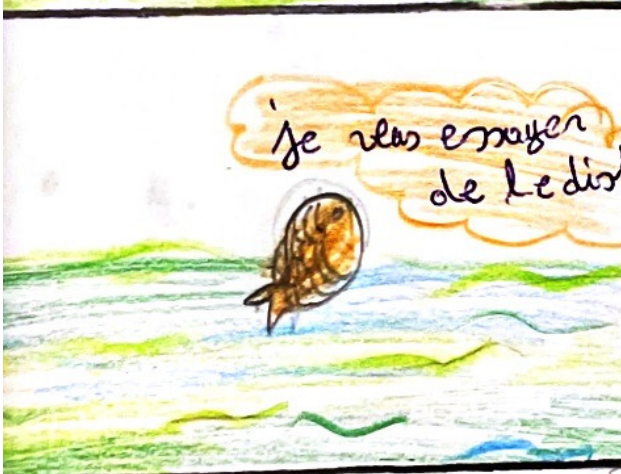 je veus essayer
de le dis